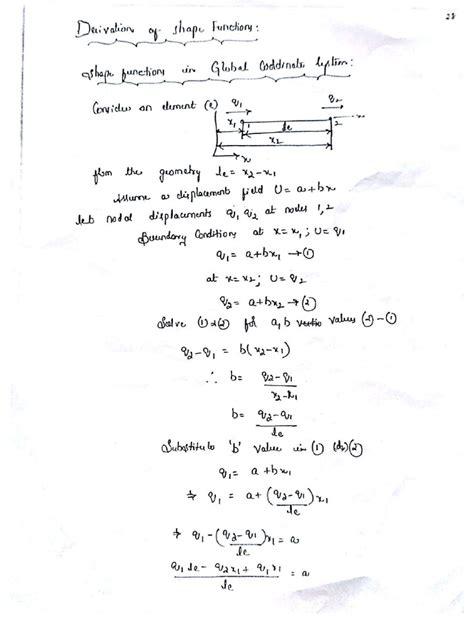 28
Derivation of shape Functions:
shape functions in Global Coddinate System:
Consider an element (e)
q₁ q₂
x₁ 1 le 2 x
x₂
x
from the geometry le = x₂-x₁
Assume a displacement field U = a+bx
let nodal displacements q₁, q₂ at nodes 1,2
Boundary Conditions at x=x₁; U=q₁
q₁ = a+bx₁ → ①
at x=x₂; U=q₂
q₂ = a+bx₂ → ②
Solve ① & ② for a,b values ②-①
q₂-q₁ = b(x₂-x₁)
∴ b= (q₂-q₁)/(x₂-x₁)
b= (q₂-q₁)/le
Substitute 'b' value in ① (or) ②
q₁= a+bx₁
⇒ q₁ = a+((q₂-q₁)/le)x₁
⇒ q₁-((q₂-q₁)/le)x₁=a
(q₁le-q₂x₁+q₁x₁)/le = a